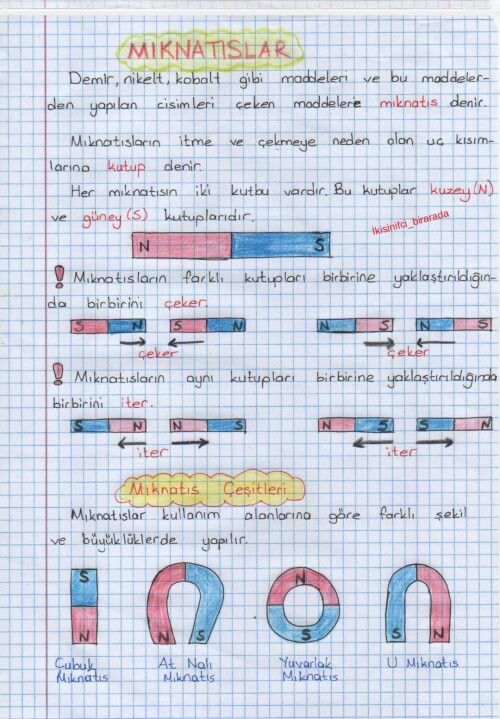 MIKNATISLAR
Demir, nikelt, kobalt gibi maddeleri ve bu maddeler-
den yapılan cisimleri çeken maddelere mıknatıs denir.
Mıknatısların itme ve çekmeye neden olan uç kısım-
larına kutup denir.
Her mıknatısın iki kutbu vardır. Bu kutuplar kuzey (N)
ve güney (S) kutuplarıdır.
ikisinifci_birarada
N S
! Mıknatısların farklı kutupları birbirine yaklaştırıldığın-
da birbirini çeker.
S N S N N S N S
çeker çeker
! Mıknatısların aynı kutupları birbirine yaklaştırıldığında
birbirini iter.
S N N S N S S N
iter iter
Mıknatıs Çeşitleri
Mıknatıslar kullanım alanlarına göre farklı şekil
ve büyüklüklerde yapılır.
S N
N S
N S
S N
Çubuk Mıknatıs
At Nalı Mıknatıs
Yuvarlak Mıknatıs
U Mıknatıs